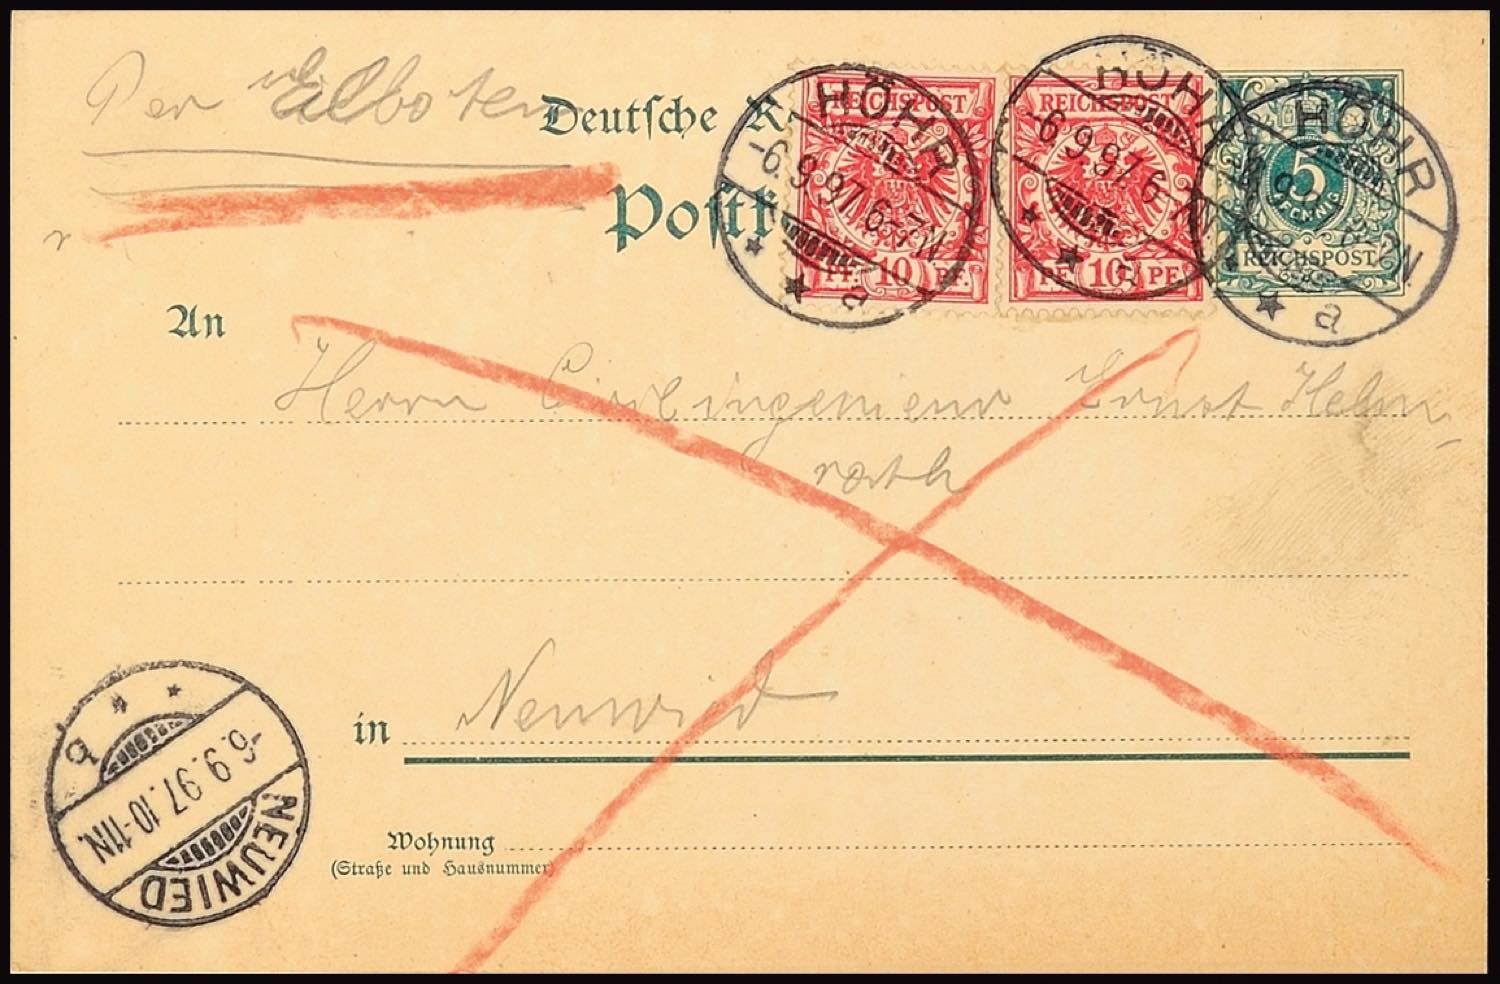 Per Eilboten
Deutsche R
Postk
An
Herrn Civilingenieur Ernst Helm-
rath
in Neuwied
Wohnung
(Straße und Hausnummer)
HÖHR
-6.9.97. 6-7N.
a
REICHSPOST
PF. 10 PF.
HÖHR
-6.9.97. 6
a
REICHSPOST
PF. 10 PF.
HÖHR
7N.
a
5
PFENNIG
REICHSPOST
NEUWIED
-6.9.97. 10-11N.
b